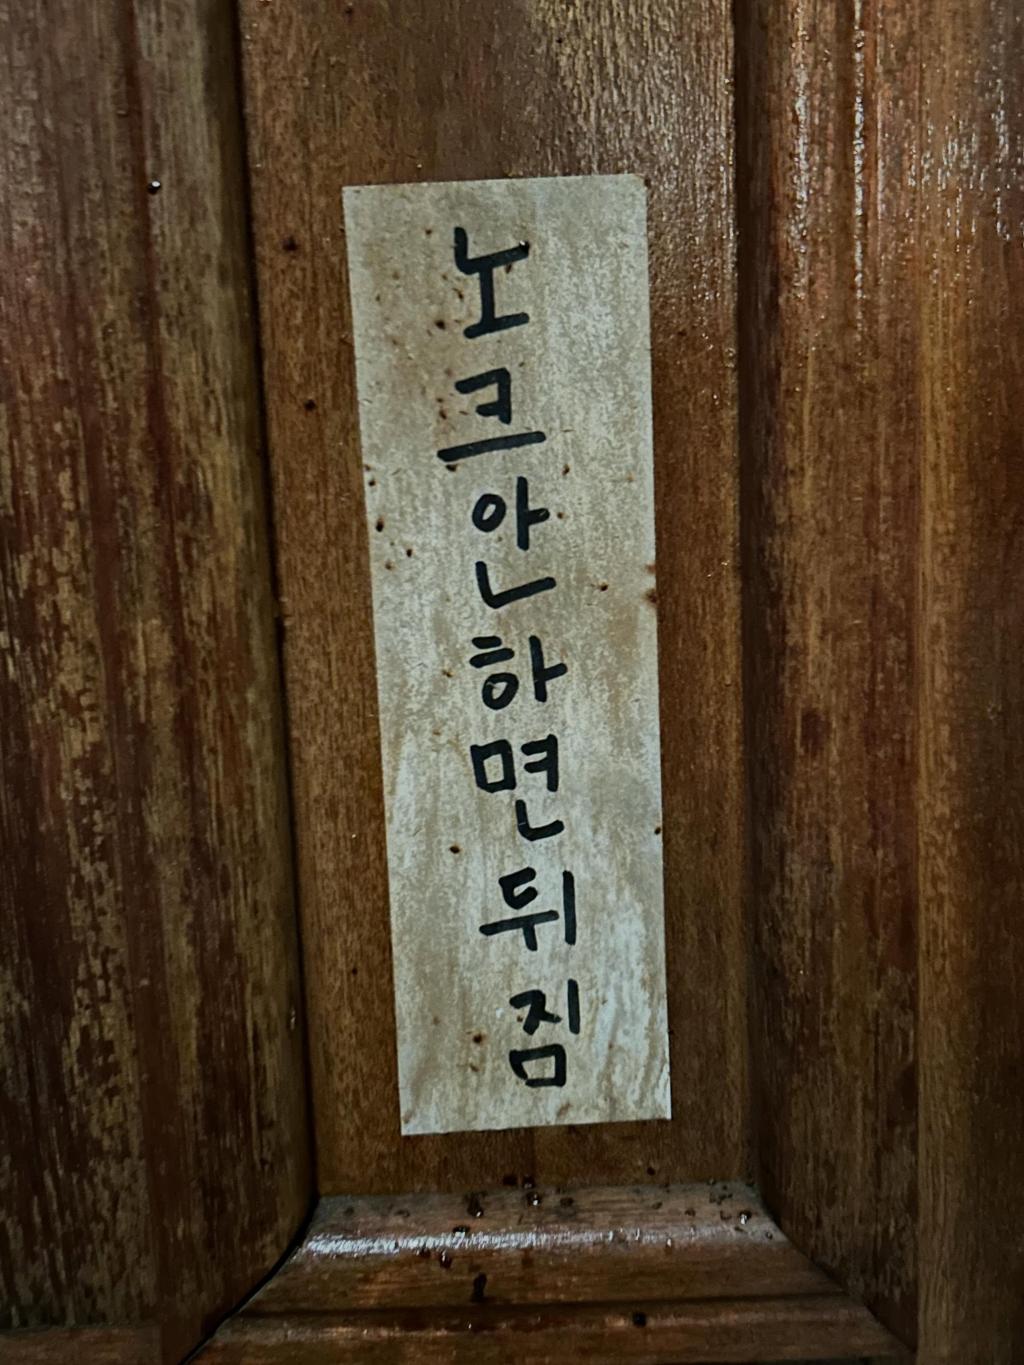 노크안하면뒤짐